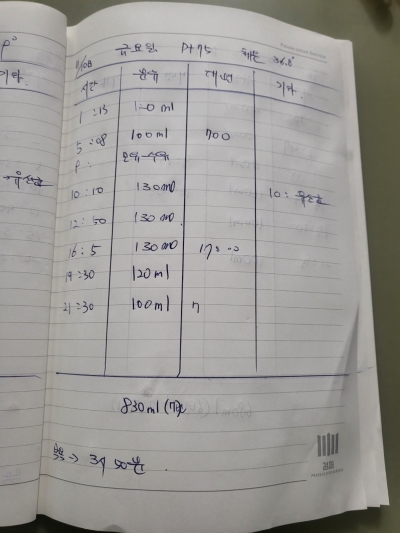 P°
기타
유산균
금요일 D+75 체온 36.8°
시간 분유 대변 기타
1:15 120ml
5:08 100ml 700
10:10 130ml 10: 유산균
12:50 130ml
16:5 130ml 17:00
19:30 120ml
21:30 100ml
830ml (7회